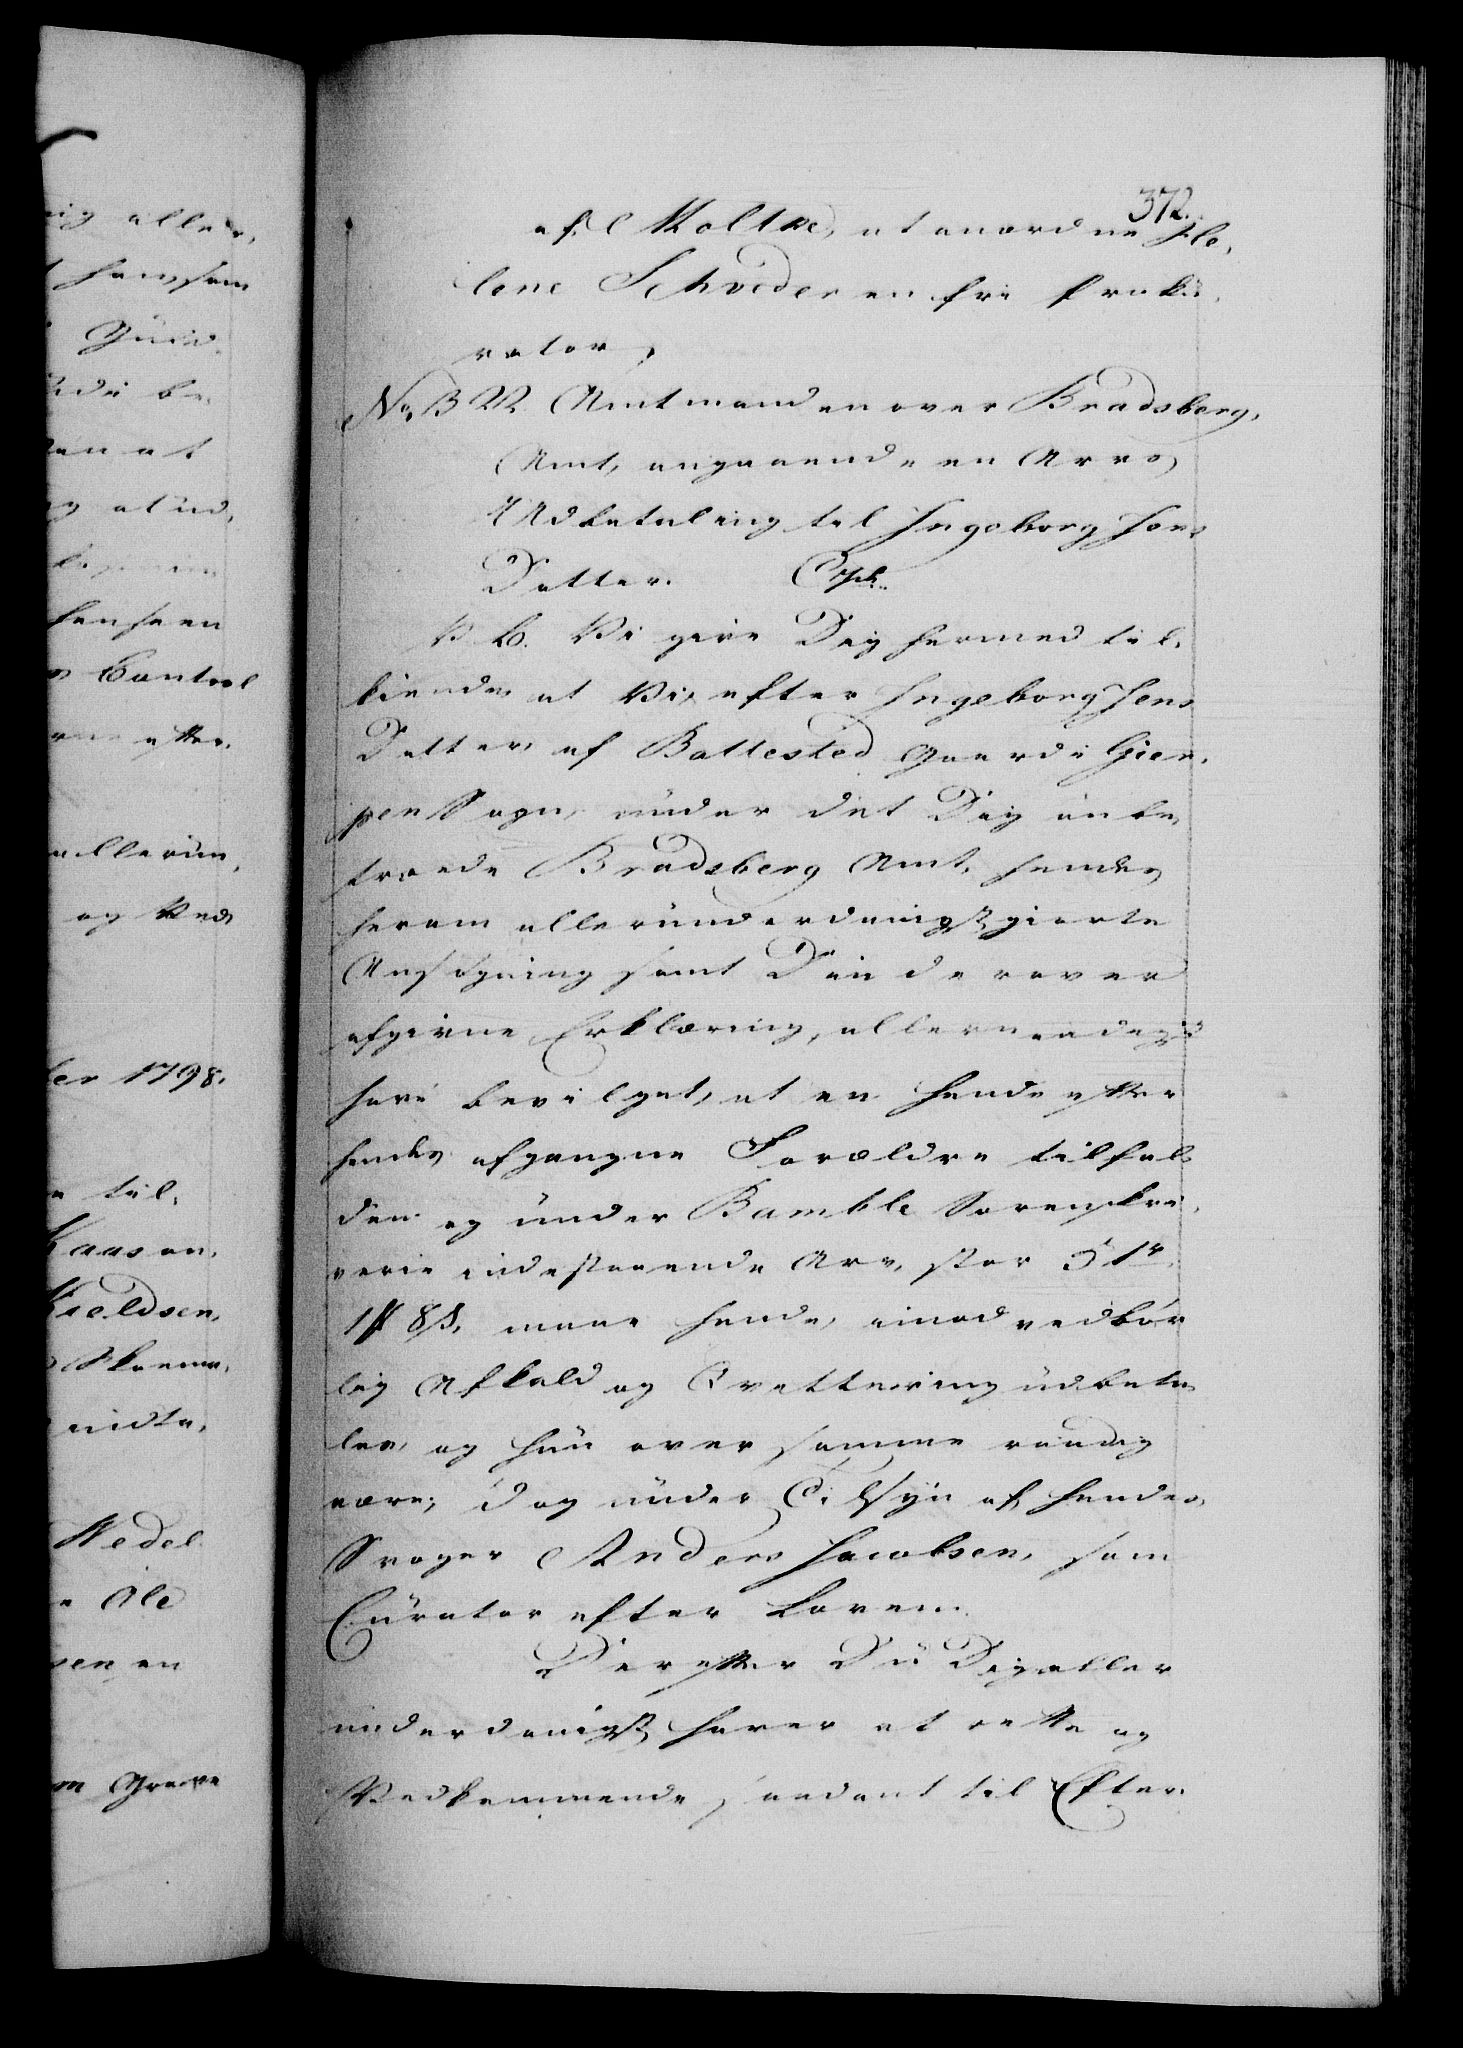 372.
af Moltke, at anordne He-
lene Schrøder en frie Proku-
rator,
Amtmanden over Bradsberg
Amt, angaaende en Arvs
Udbetaling til Ingeborg Jens
Datter. Cph.
Vi give Dig hermed til-
kiende, at Vi, efter Ingeborg Jens
Datter af Ballested Gaard i Gier-
pen Sogn, under det Dig anbe-
troede Bradsberg Amt, hendes
herom allerunderdanigst giorte
Ansøgning samt Din derover
afgivne Erklæring, allernaadigst
have bevilget, at en hende efter
hendes afgangne Forældre tilfal-
den og under Bamble Sorenskri-
verie indestaaende Arv, stor 51 rd
1 # 8 ß, maae hende, imod vedbør-
lig Afkald og Qvittering udbeta-
les, og hun over samme raadig
være, dog under Tilsyn af hendes
Svoger Anders Jacobsen, som
Curator efter Loven.
Derefter Du Dig aller-
underdanigst haver at rette og
Vedkommende saadant til Efter-
alle
hansom
be-
at
Control
efter
allerun-
og Ved
ber 1798.
til-
Kaas an-
Kieldsen,
Wedel
Ole
sen en
om Greve